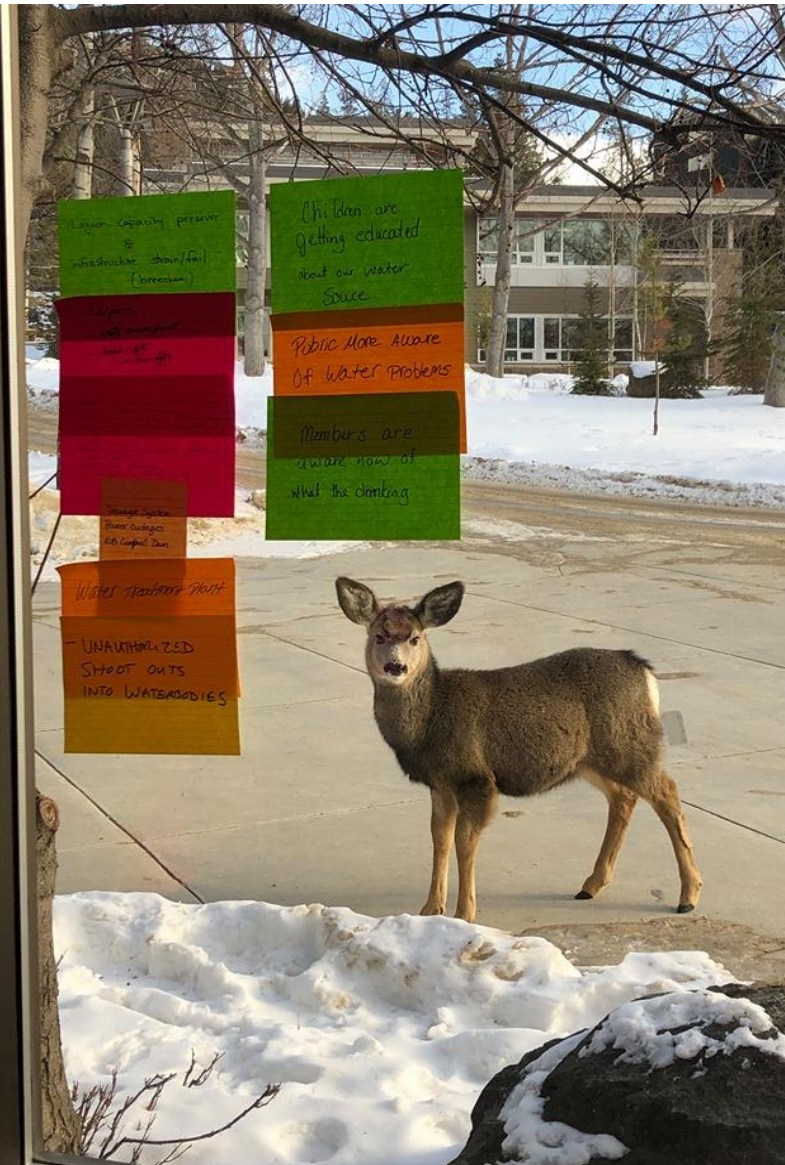 Lagoon capacity pressure
&
infrastructure strain/fail
(breeches)
Sewage System
Power Outages
EB Campbell Dam
Water Treatment Plant
- UNAUTHORIZED
SHOOT OUTS
INTO WATERBODIES
Children are
getting educated
about our water
Souce
Public More Aware
Of Water Problems
Members are
aware now of
what the drinking